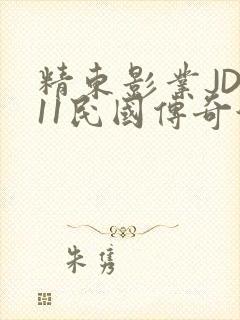 精東影業JD
11民國傳奇
朱雋